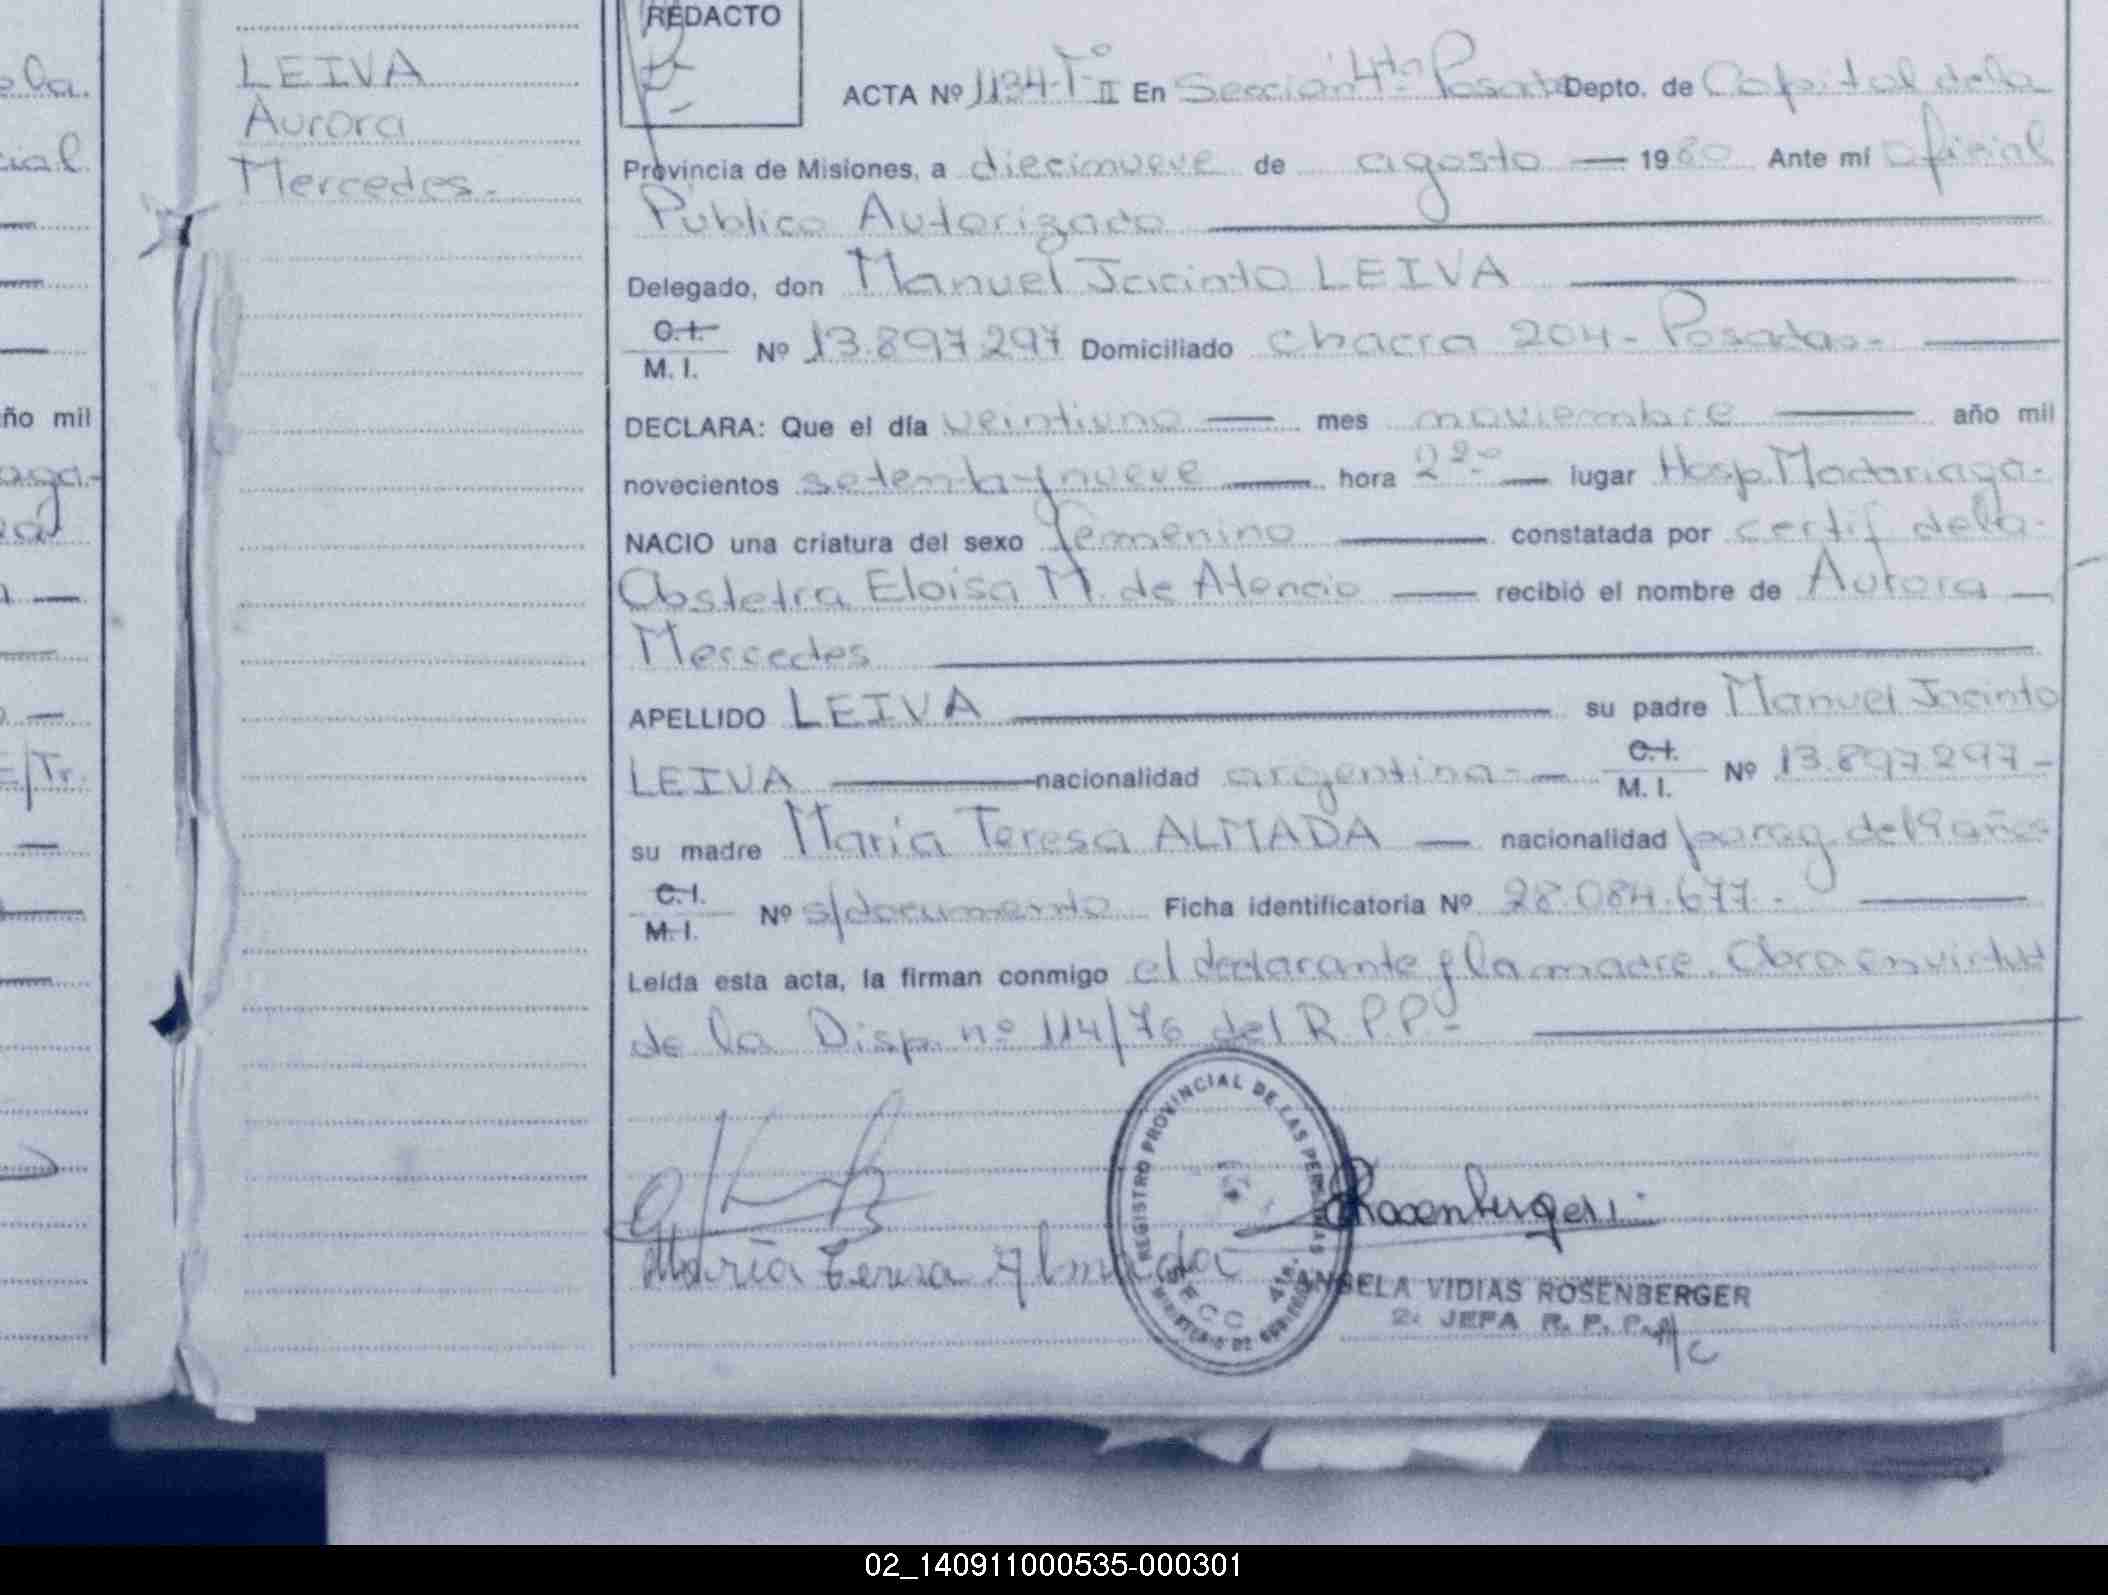 REDACTO
LEIVA
Aurora
Mercedes.-
ACTA Nº 1194-Tº II En Sección 4ta Posadas Depto. de Capital de la
Provincia de Misiones, a diecinueve de agosto — 1980 Ante mí Oficial
Público Autorizado
Delegado, don Manuel Jacinto LEIVA
C.I.
M. I. Nº 13.897.297 Domiciliado chacra 204- Posadas-
DECLARA: Que el día veintiuno — mes noviembre — año mil
novecientos setenta y nueve — hora 2 20 — lugar Hosp. Madariaga.-
NACIO una criatura del sexo femenino — constatada por certif de la
Obstetra Eloisa M. de Atencio — recibió el nombre de Aurora —
Mercedes
APELLIDO LEIVA — su padre Manuel Jacinto
LEIVA — nacionalidad argentina- — C.I.
M. I. Nº 13.897.297-
su madre María Teresa ALMADA — nacionalidad parag. de 19 años
C.I.
M. I. Nº s/documento Ficha identificatoria Nº 28.084.677.-
Leída esta acta, la firman conmigo el declarante y la madre. Obra en virtud
de la Disp. nº 114/76 del R.P.P.-
María Teresa Almada
Rosenberger
REGISTRO PROVINCIAL DE LAS PERSONAS
MINISTERIO DE GOBIERNO
SECC 4ta.
ANGELA VIDIAS ROSENBERGER
2: JEFA R. P. P. A/C
ela.
cial
año mil
aga.-
E/Tr.
02_140911000535-000301